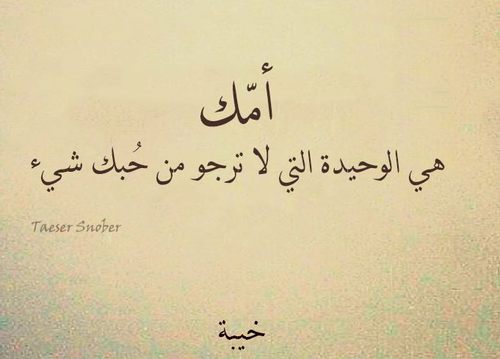 أمّك
هي الوحيدة التي لا ترجو من حُبك شيء
Taeser Snober
خيبة